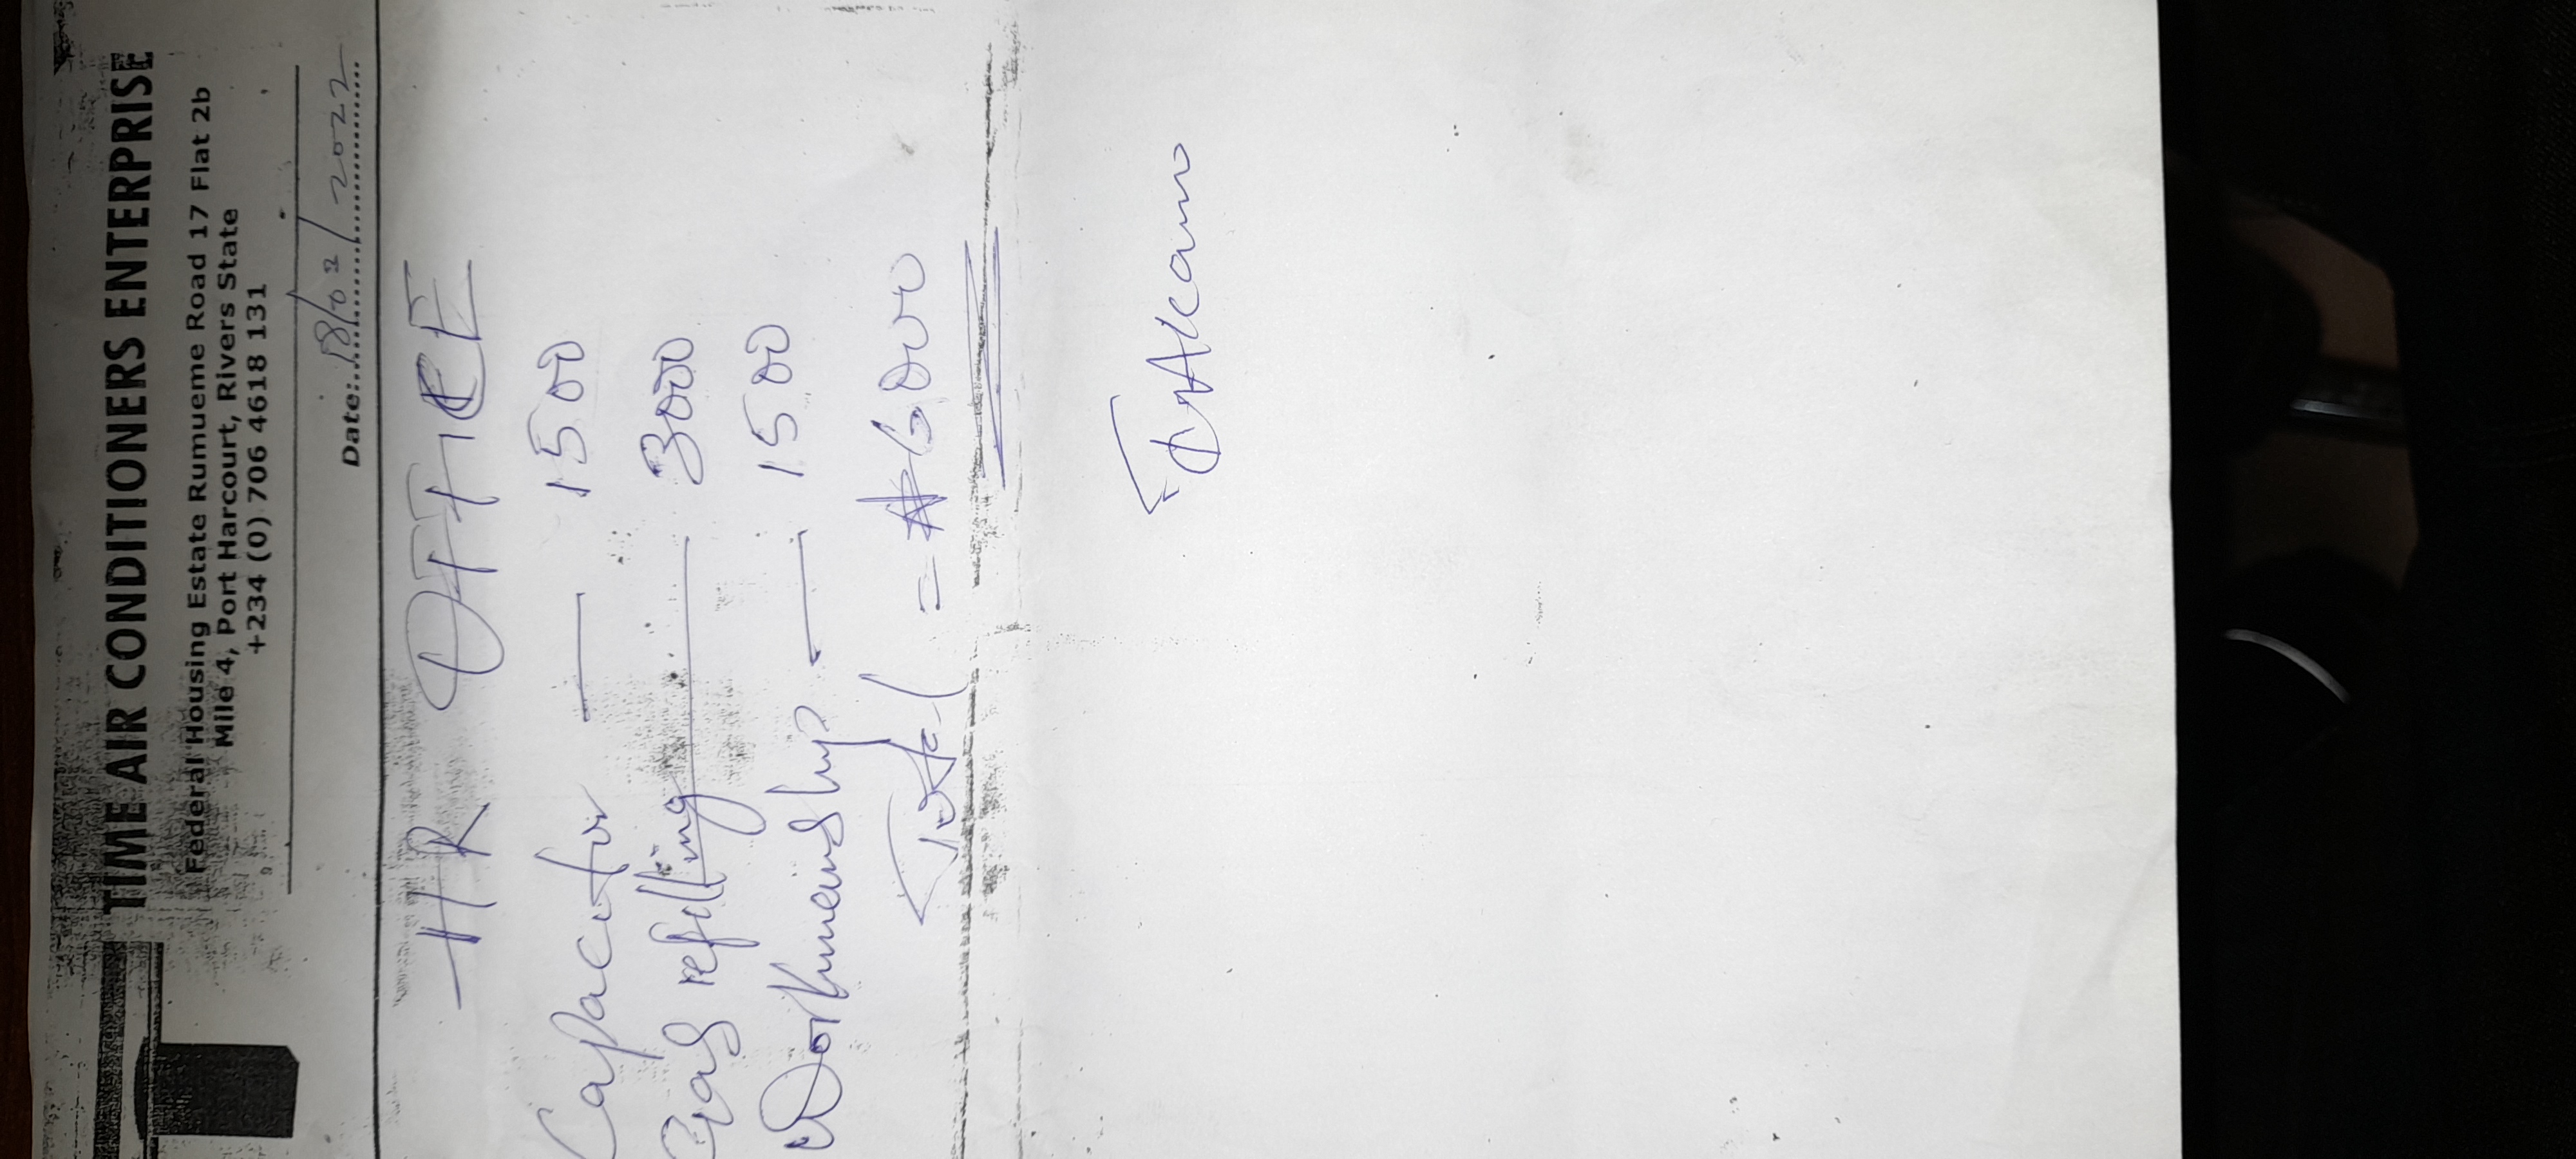 TIME AIR CONDITIONERS ENTERPRISE
Federal Housing Estate Rumueme Road 17 Flat 2b
Mile 4, Port Harcourt, Rivers State
+234 (0) 706 4618 131
Date: 18/02/2022
HR OFFICE
Capacitor — 1500
Gas refilling — 3000
Workmanship — 1500
Total = ₦6000